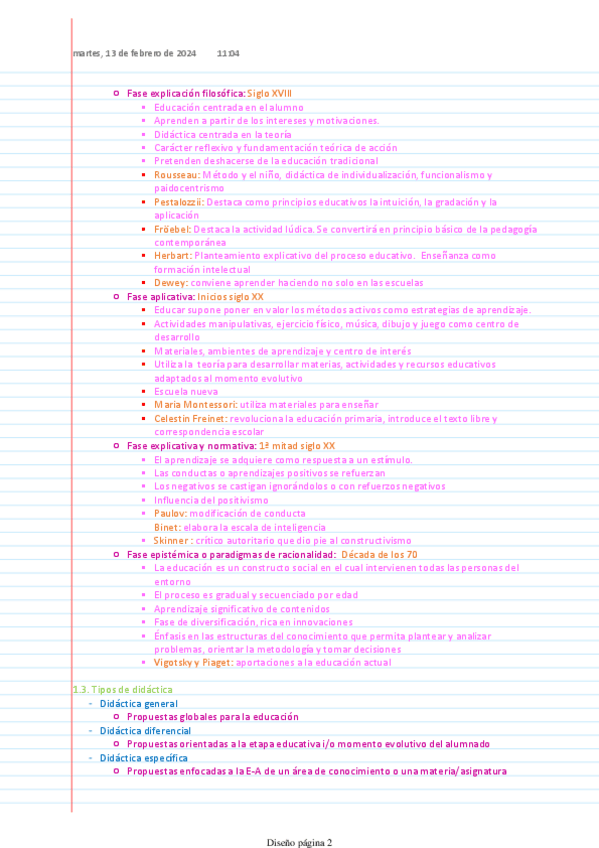 martes, 13 de febrero de 2024 11:04
o Fase explicación filosófica: Siglo XVIII
▪ Educación centrada en el alumno
▪ Aprenden a partir de los intereses y motivaciones.
▪ Didáctica centrada en la teoría
▪ Carácter reflexivo y fundamentación teórica de acción
▪ Pretenden deshacerse de la educación tradicional
▪ Rousseau: Método y el niño, didáctica de individualización, funcionalismo y
paidocentrismo
▪ Pestalozzii: Destaca como principios educativos la intuición, la gradación y la
aplicación
▪ Fröebel: Destaca la actividad lúdica. Se convertirá en principio básico de la pedagogía
contemporánea
▪ Herbart: Planteamiento explicativo del proceso educativo. Enseñanza como
formación intelectual
▪ Dewey: conviene aprender haciendo no solo en las escuelas
o Fase aplicativa: Inicios siglo XX
▪ Educar supone poner en valor los métodos activos como estrategias de aprendizaje.
▪ Actividades manipulativas, ejercicio físico, música, dibujo y juego como centro de
desarrollo
▪ Materiales, ambientes de aprendizaje y centro de interés
▪ Utiliza la teoría para desarrollar materias, actividades y recursos educativos
adaptados al momento evolutivo
▪ Escuela nueva
▪ Maria Montessori: utiliza materiales para enseñar
▪ Celestin Freinet: revoluciona la educación primaria, introduce el texto libre y
correspondencia escolar
o Fase explicativa y normativa: 1ª mitad siglo XX
▪ El aprendizaje se adquiere como respuesta a un estímulo.
▪ Las conductas o aprendizajes positivos se refuerzan
▪ Los negativos se castigan ignorándolos o con refuerzos negativos
▪ Influencia del positivismo
▪ Paulov: modificación de conducta
Binet: elabora la escala de inteligencia
▪ Skinner : crítico autoritario que dio pie al constructivismo
o Fase epistémica o paradigmas de racionalidad: Década de los 70
▪ La educación es un constructo social en el cual intervienen todas las personas del
entorno
▪ El proceso es gradual y secuenciado por edad
▪ Aprendizaje significativo de contenidos
▪ Fase de diversificación, rica en innovaciones
▪ Énfasis en las estructuras del conocimiento que permita plantear y analizar
problemas, orientar la metodología y tomar decisiones
▪ Vigotsky y Piaget: aportaciones a la educación actual
1.3. Tipos de didáctica
- Didáctica general
o Propuestas globales para la educación
- Didáctica diferencial
o Propuestas orientadas a la etapa educativa i/o momento evolutivo del alumnado
- Didáctica específica
o Propuestas enfocadas a la E-A de un área de conocimiento o una materia/asignatura
Diseño página 2